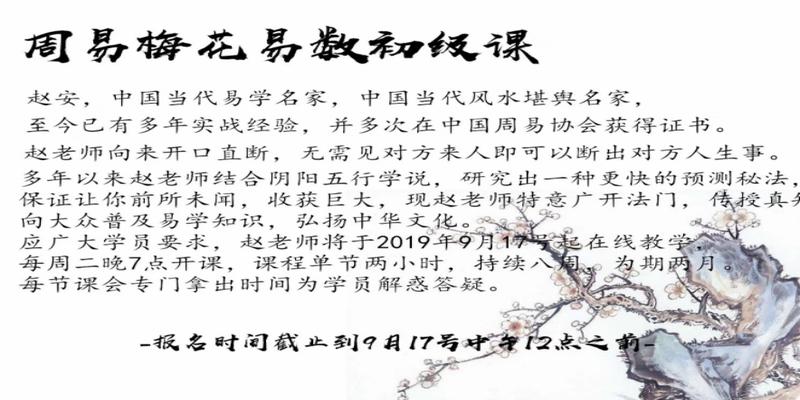 周易梅花易数初级课
赵安，中国当代易学名家，中国当代风水堪舆名家，
至今已有多年实战经验，并多次在中国周易协会获得证书。
赵老师向来开口直断，无需见对方来人即可以断出对方人生事。
多年以来赵老师结合阴阳五行学说，研究出一种更快的预测秘法，
保证让你前所未闻，收获巨大，现赵老师特意广开法门，传授真知
向大众普及易学知识，弘扬中华文化。
应广大学员要求，赵老师将于2019年9月17号起在线教学，
每周二晚7点开课，课程单节两小时，持续八周，为期两月。
每节课会专门拿出时间为学员解惑答疑。
-报名时间截止到9月17号中午12点之前-